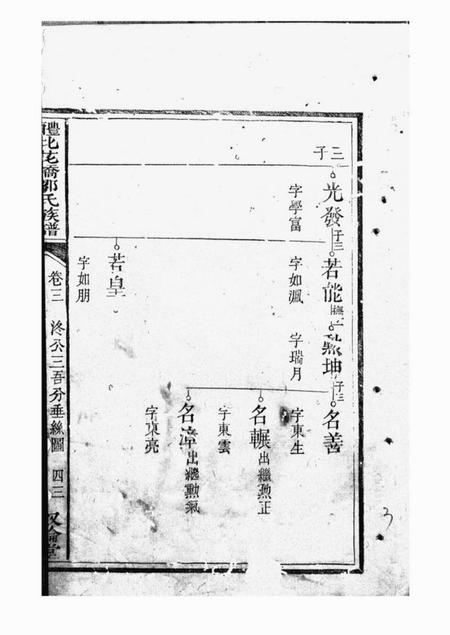 三子
光發
字學富
子三
若能
字如渢
若皇
字如朋
坤
字瑞月
子三
名善
字東生
名輾
出繼燕正
字東雲
名漳
出繼勳氣
字東亮
醴北花橋鄧氏族譜
卷三
洣公三吾分垂絲圖
四三
3